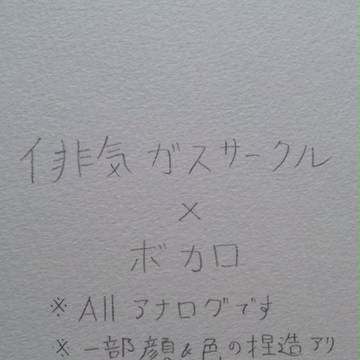 俳気ガスサークル
×
ボカロ
※Allアナログです
※一部顔&色の捏造アリ